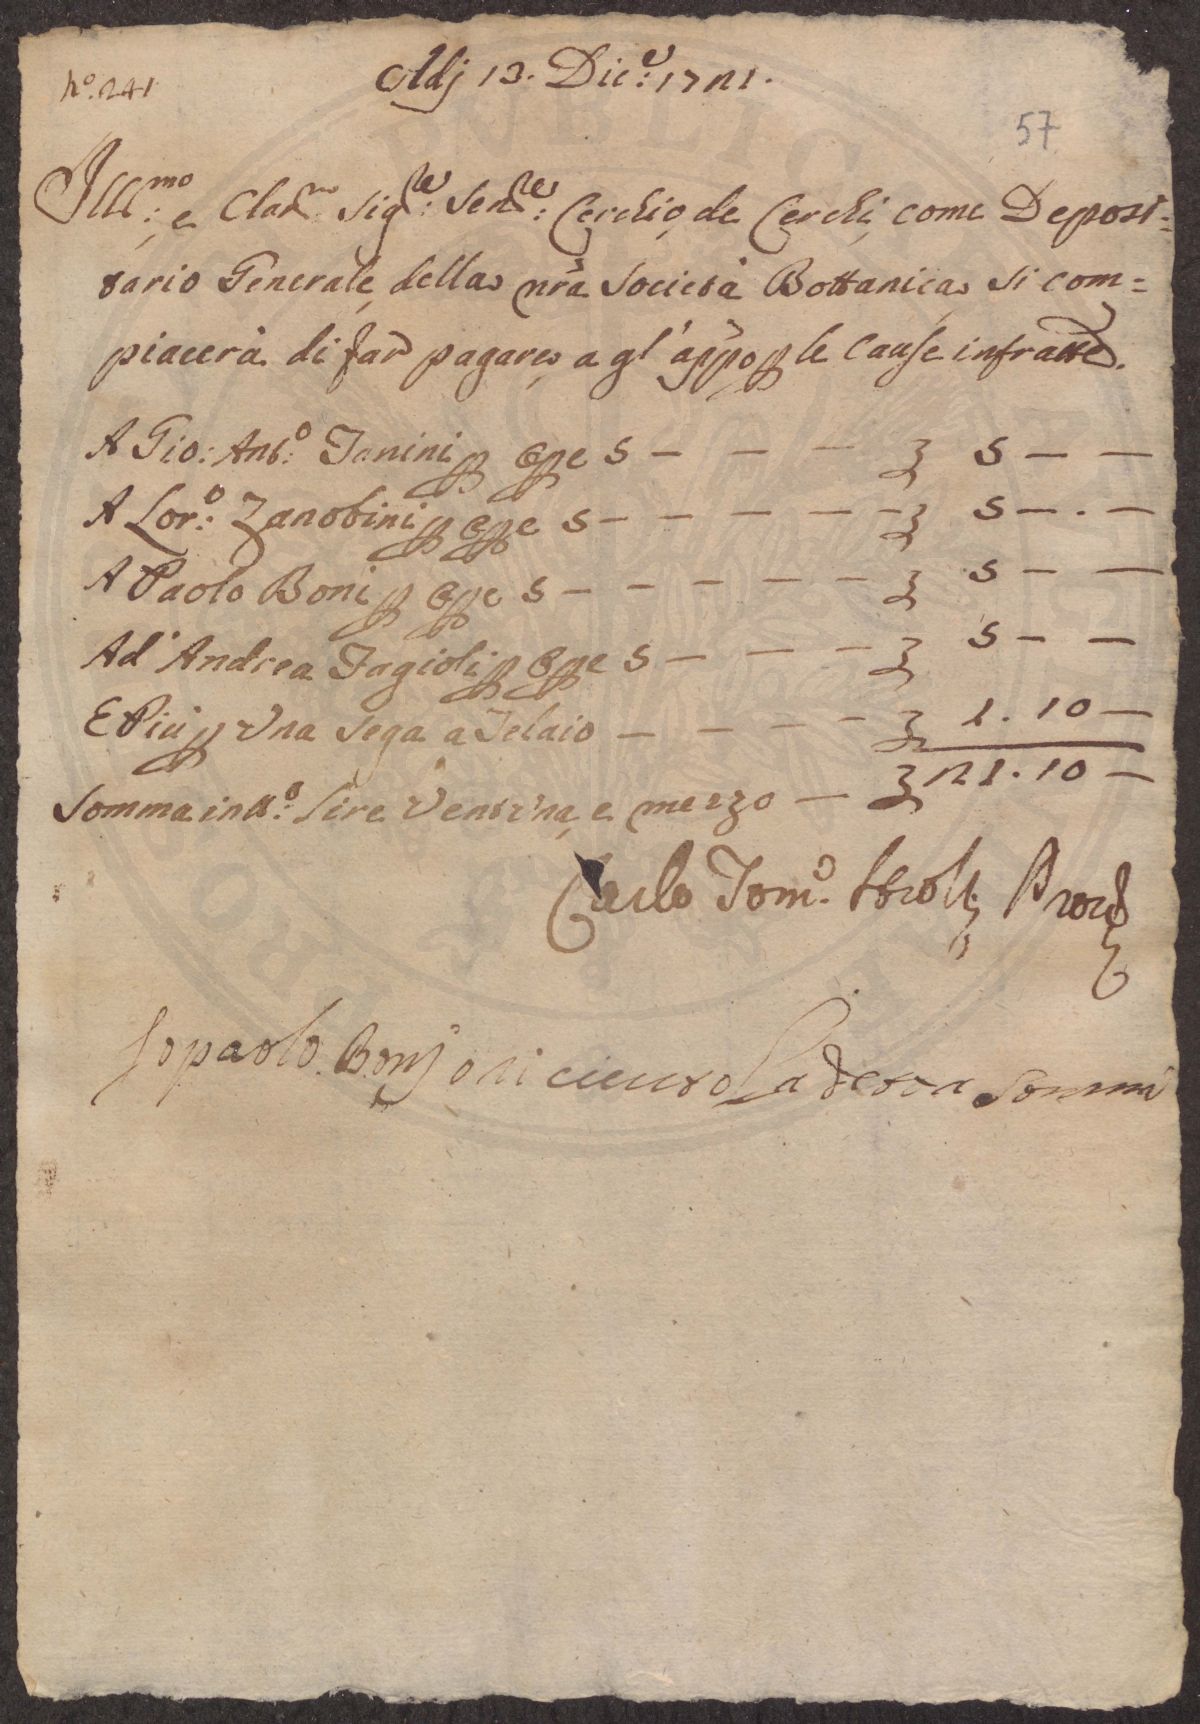 No. 241
Adj 13. Dice: 1721.
57
Illmo: e Clarmo Sigre: Senre: Cerchio de Cerchi come Deposi=
tario Generale della nra Società Bottanica si com=
piacerà di far pagare a gl'appo p le cause infratte.
A Gio: Anto: Fanini p Ope 5 — — — £ 5 — —
A Loro: Zanobini p Ope 5 — — — — — £ 5 — . —
A Paolo Boni p Ope 5 — — — — — £ 5 — —
Ad' Andrea Fagioli p Ope 5 — — — £ 5 — —
E Più p Una Sega a Telaio — — — — £ 1. 10 —
Somma in tto: Lire Vent'una, e mezzo — £ 21. 10 —
Carlo Tomo. Prov
Io paolo Bonj o riceuto La detta Somma